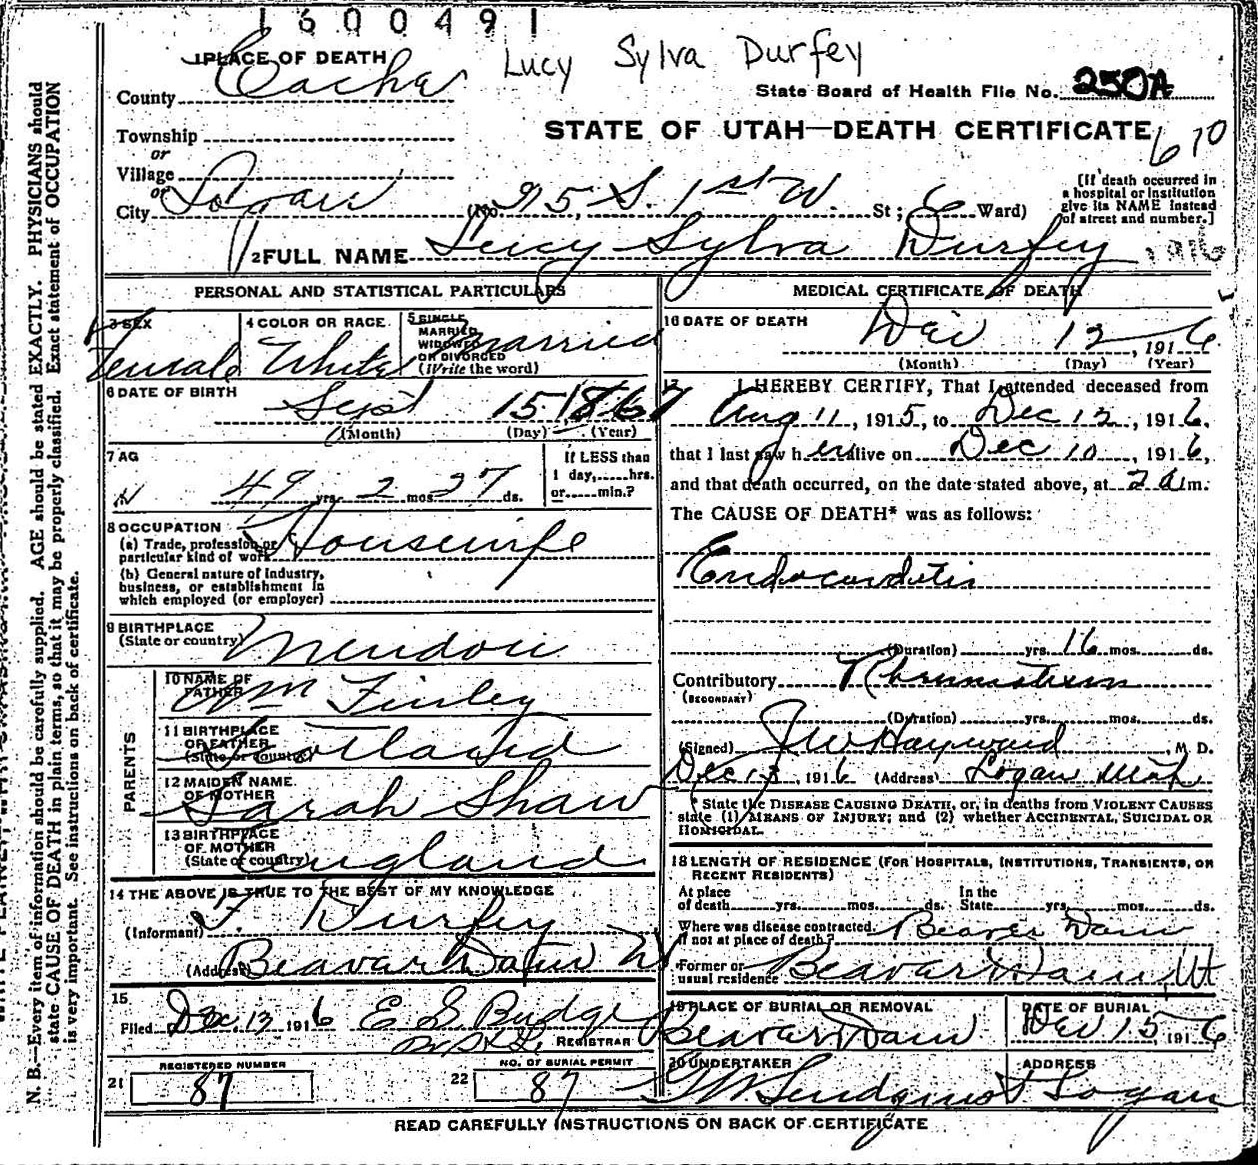 1600491
1 PLACE OF DEATH
Lucy Sylva Durfey
County Cache
State Board of Health File No. 250A
Township
STATE OF UTAH—DEATH CERTIFICATE
670
or
Village
or
City Logan (No. 95, S. 1st W. St; 6 Ward)
[If death occurred in a hospital or institution give its NAME instead of street and number.]
2 FULL NAME Lucy Sylva Durfey
1916
PERSONAL AND STATISTICAL PARTICULARS
3 SEX
Female
4 COLOR OR RACE
White
5 SINGLE MARRIED WIDOWED OR DIVORCED (Write the word)
Married
6 DATE OF BIRTH
Sept 15 1867
(Month) (Day) (Year)
7 AG
49 yrs. 2 mos. 27 ds.
If LESS than 1 day,......hrs. or......min.?
8 OCCUPATION
(a) Trade, profession or particular kind of work Housewife
(b) General nature of industry, business, or establishment in which employed (or employer)
9 BIRTHPLACE
(State or country) Mendon
PARENTS
10 NAME OF FATHER Wm Finley
11 BIRTHPLACE OF FATHER (State or country) Scotland
12 MAIDEN NAME OF MOTHER Sarah Shaw
13 BIRTHPLACE OF MOTHER (State or country) England
14 THE ABOVE IS TRUE TO THE BEST OF MY KNOWLEDGE
(Informant) F. Durfey
(Address) Beavar Dam
15
Filed Dec. 13 1916 E S Budge
REGISTRAR
21 REGISTERED NUMBER
87
22 NO. OF BURIAL PERMIT
87
MEDICAL CERTIFICATE OF DEATH
16 DATE OF DEATH
Dec 12, 1916
(Month) (Day) (Year)
17 I HEREBY CERTIFY, That I attended deceased from
Aug 11, 1915, to Dec 12, 1916,
that I last saw her alive on Dec 10, 1916,
and that death occurred, on the date stated above, at 2 a m.
The CAUSE OF DEATH* was as follows:
Endocarditis
(Duration) yrs. 16 mos. ds.
Contributory Rheumatism
(SECONDARY)
(Duration) yrs. mos. ds.
(Signed) J W Hayward, M. D.
Dec 13, 1916 (Address) Logan Utah
* State the DISEASE CAUSING DEATH, or, in deaths from VIOLENT CAUSES
state (1) MEANS OF INJURY; and (2) whether ACCIDENTAL, SUICIDAL OR
HOMICIDAL.
18 LENGTH OF RESIDENCE (FOR HOSPITALS, INSTITUTIONS, TRANSIENTS, OR
RECENT RESIDENTS)
At place of death yrs. mos. ds. In the State yrs. mos. ds.
Where was disease contracted, if not at place of death? Beaver Dam
Former or usual residence Beavar Dam, Ut
19 PLACE OF BURIAL OR REMOVAL
Beavar Dam
DATE OF BURIAL
Dec 15, 1916
20 UNDERTAKER
ADDRESS
Logan
READ CAREFULLY INSTRUCTIONS ON BACK OF CERTIFICATE
N. B.—Every item of information should be carefully supplied. AGE should be stated EXACTLY. PHYSICIANS should
state CAUSE OF DEATH in plain terms, so that it may be properly classified. Exact statement of OCCUPATION
is very important. See instructions on back of certificate.